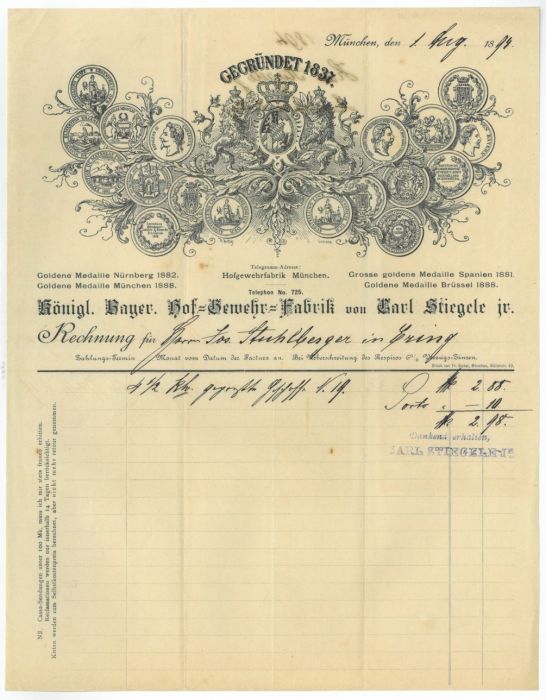 München, den 1. Aug. 1894
GEGRÜNDET 1831.
Goldene Medaille Nürnberg 1882.
Goldene Medaille München 1888.
Telegramm-Adresse:
Hofgewehrfabrik München.
Telephon No. 725.
Grosse goldene Medaille Spanien 1881.
Goldene Medaille Brüssel 1888.
Königl. Bayer. Hof=Gewehr=Fabrik von Carl Stiegele jr.
Rechnung für Herrn Jos. Stuhlberger in Ering
Zahlungs-Termin Monat vom Datum der Factura an. Bei Ueberschreitung des Respiros 6% Verzugs-Zinsen.
N. 19. M 2.88
Porto " —10
M 2.98.
Dankend erhalten,
CARL STIEGELE JR
NB. Cassa-Sendungen unter 100 Mk. muss ich mir stets franco erbitten.
Reclamationen werden nur innerhalb 14 Tagen berücksichtigt.
Kisten werden zum Selbstkostenpreis berechnet, aber nicht mehr retour genommen.